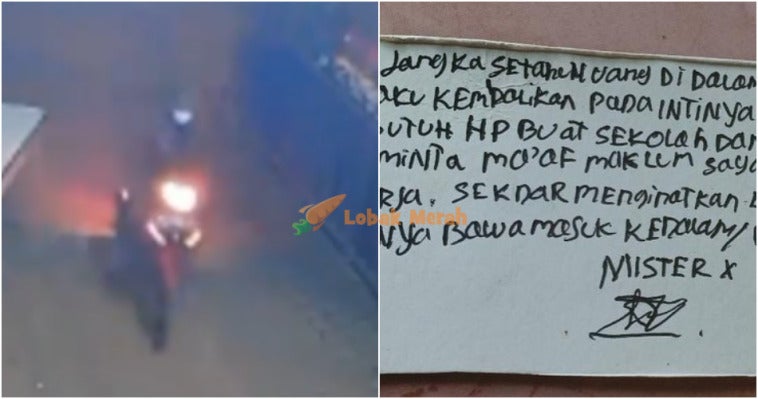 Lobak Merah
Jangka SETAHUN UANG DI DALAM
AKU KEMBALIKAN PADA INTINYA
BUTUH HP BUAT SEKOLAH DAN
MINTA MA'AF MAKLUM SAYA
SEKDAR MENGINATKAN
NYA BAWA MASUK KEDALAM/
MISTER X